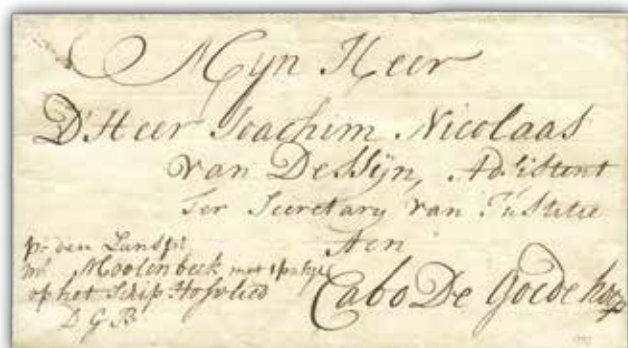 Myn Heer
D'Heer Joachim Nicolaas
van Dessyn, Adsistent
ter Secretary van Justitie
Aen
Cabo De Goede hoop
pr den
Moolenbeek met 1
op het Scip Hofvliet
D G B